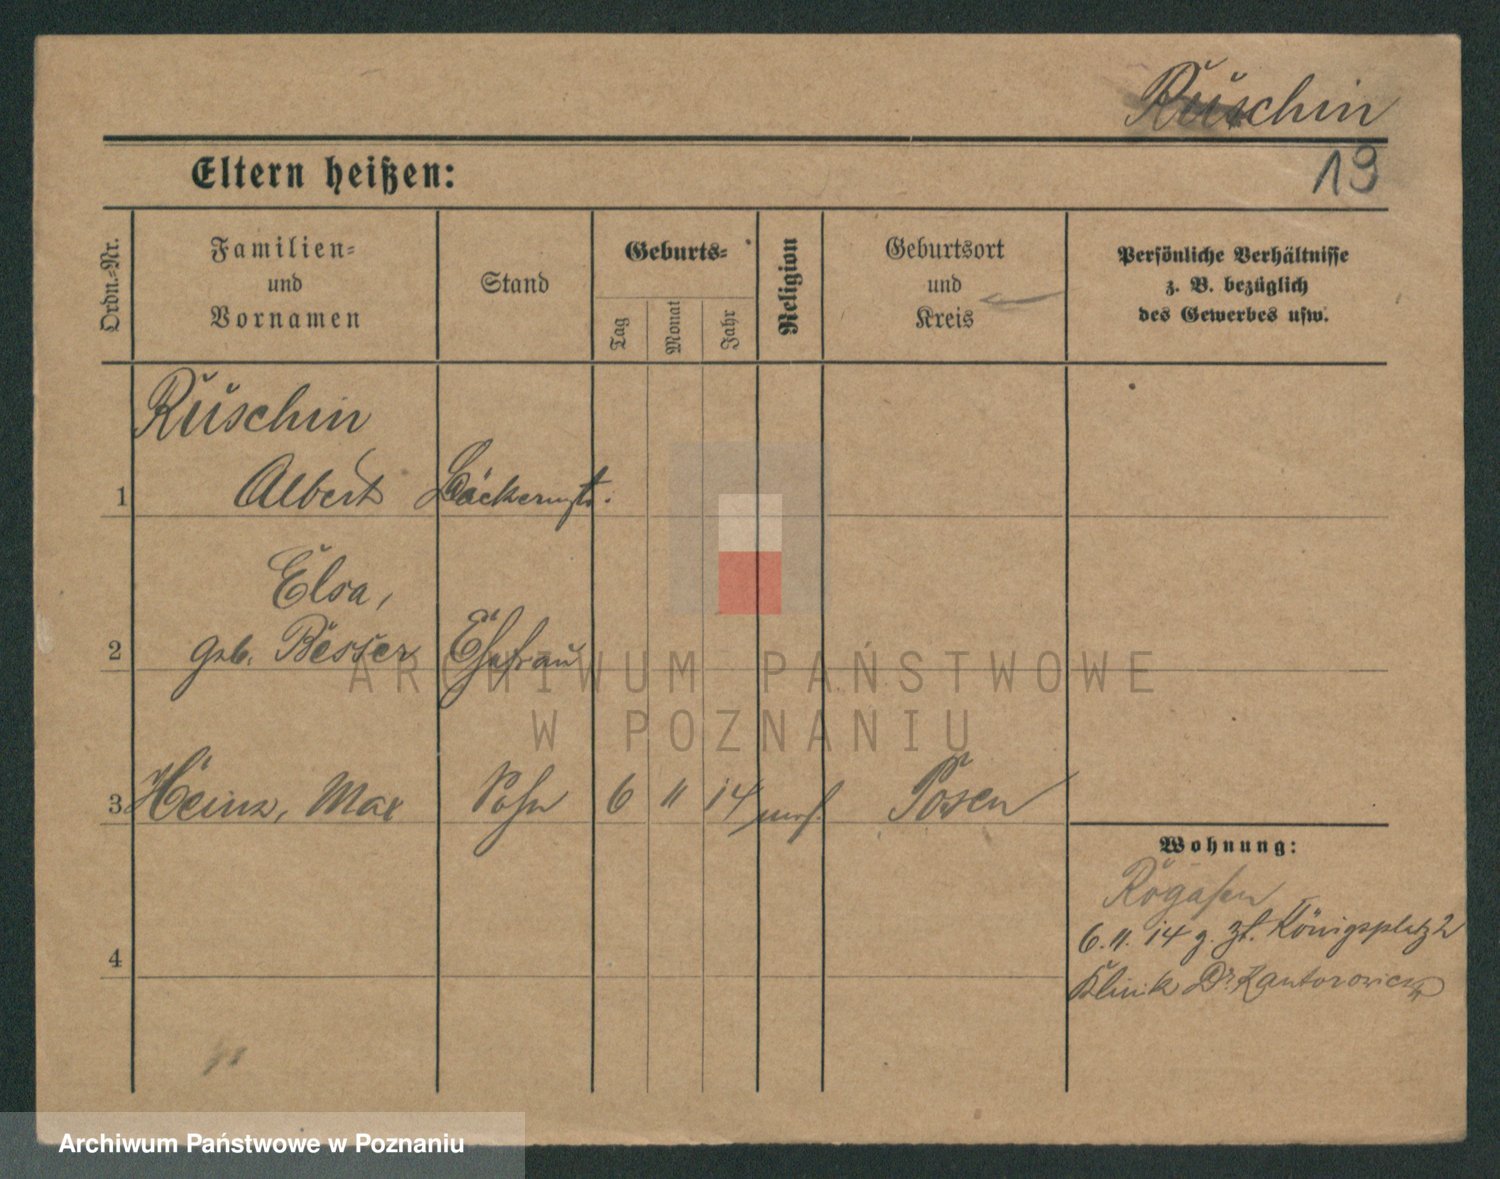 Ruschin
19
Eltern heißen:
Ordn.-Nr.
Familien-
und
Vornamen
Stand
Geburts-
Tag
Monat
Jahr
Religion
Geburtsort
und
Kreis
Persönliche Verhältnisse
z. B. bezüglich
des Gewerbes usw.
Ruschin
1 Albert Bäckermstr.
Elsa,
2 geb. Besser Ehefrau
3 Heinz, Max Sohn 6 11 14 mos. Posen
Wohnung:
Rogasen
6. 11. 14 g. zt. Königsplatz 2
Klinik Dr. Kantorowicz
4
ARCHIWUM PAŃSTWOWE
W POZNANIU
Archiwum Państwowe w Poznaniu